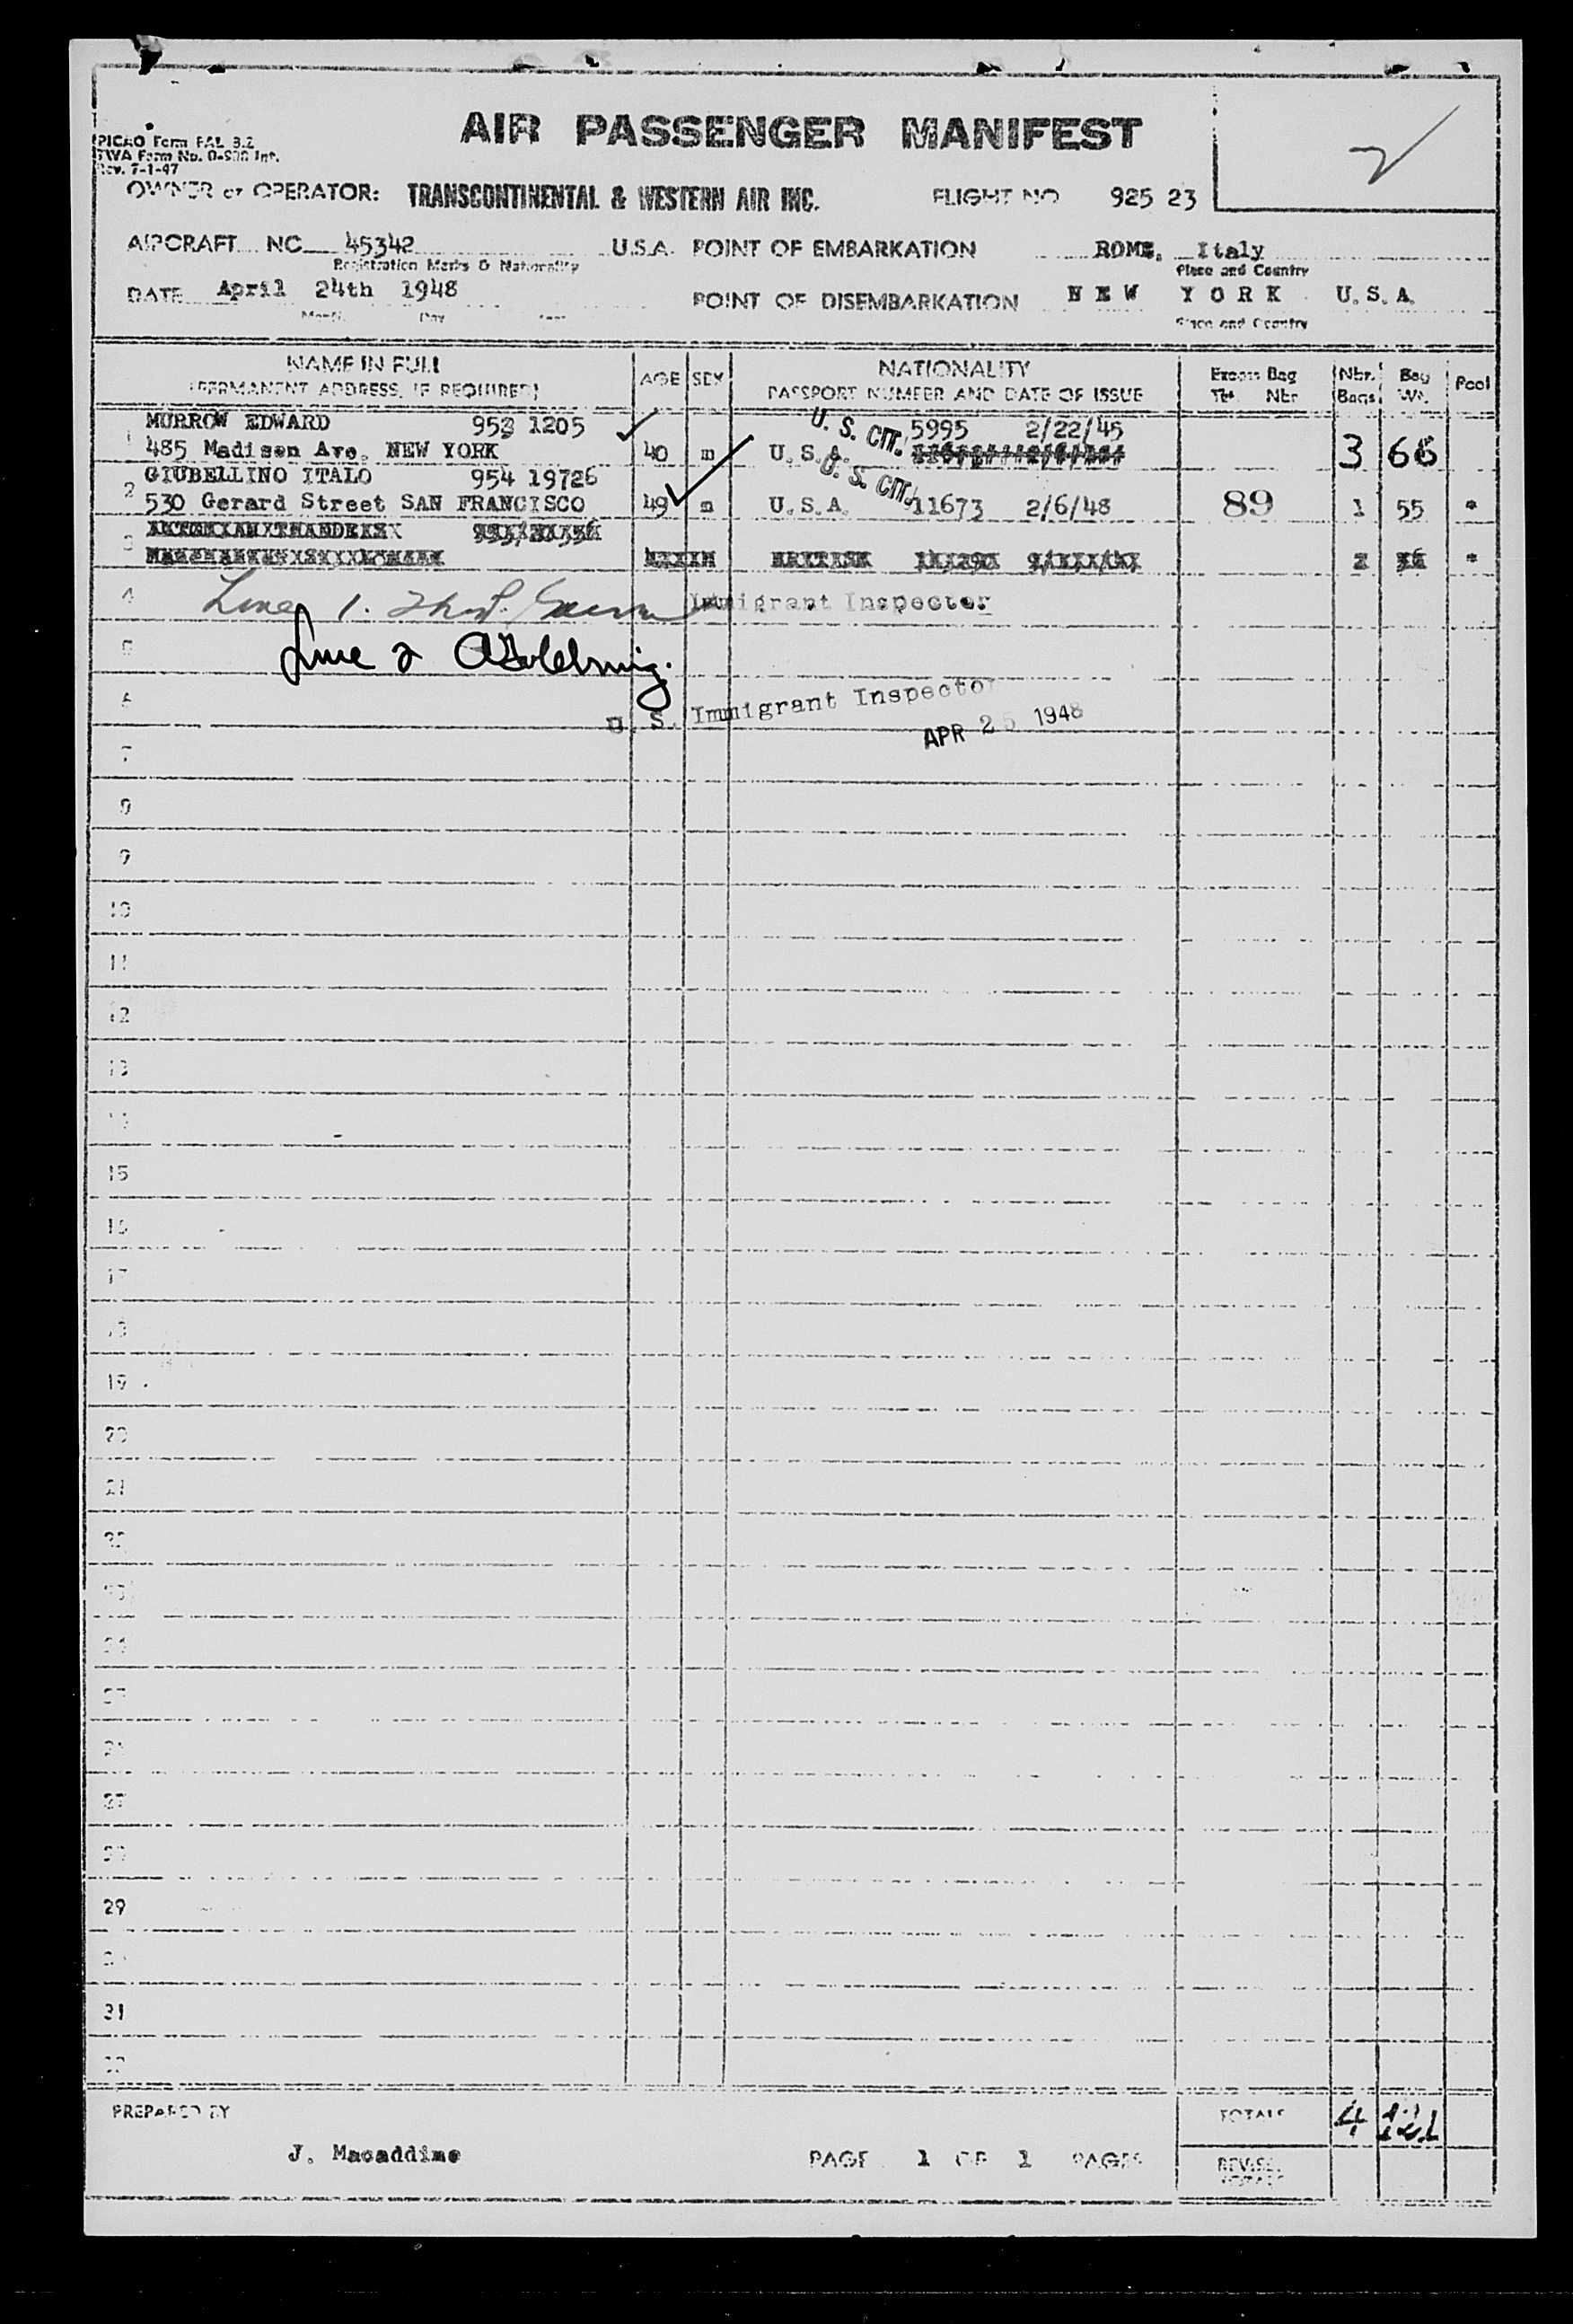 AIR PASSENGER MANIFEST
PICAO Form FAL 3.2
TWA Form No. 0-900 Int.
Rev. 7-1-47
OWNER or OPERATOR: TRANSCONTINENTAL & WESTERN AIR INC. FLIGHT NO 925 23
AIRCRAFT NC 45342 U.S.A. POINT OF EMBARKATION ROME, Italy
Registration Marks & Nationality Place and Country
DATE April 24th 1948 POINT OF DISEMBARKATION NEW YORK U.S.A.
Month Day Year Place and Country
NAME IN FULL AGE SEX NATIONALITY Excess Bag Nbr. Bag Pool
(PERMANENT ADDRESS, IF REQUIRED) PASSPORT NUMBER AND DATE OF ISSUE Tkt Nbr Bags Wt.
MURROW EDWARD 953 1205 U. S. CIT. 5995 2/22/45
1 485 Madison Ave. NEW YORK 40 m U.S.A. 3 66
GIUBELLINO ITALO 954 19726 U. S. CIT.
2 530 Gerard Street SAN FRANCISCO 49 m U.S.A. 11673 2/6/48 89 1 55 *
3 BRITISH *
4 Line 1. Immigrant Inspector
5 Line 2
6 U. S. Immigrant Inspector
APR 25 1948
7
8
9
10
11
12
13
14
15
16
17
18
19
20
21
22
23
24
25
26
27
28
29
30
31
32
PREPARED BY TOTALS 4 121
J. Macaddime PAGE 1 OF 1 PAGES REVISED TOTALS